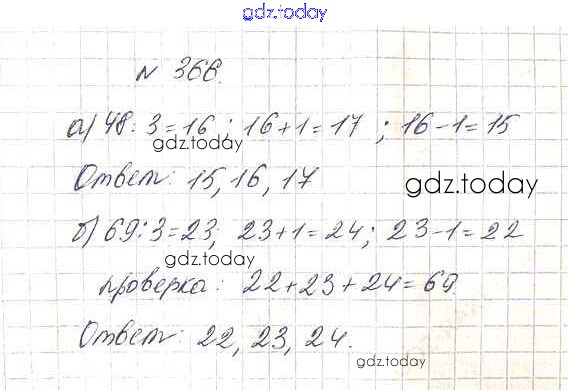 gdz.today
№ 366.
а) 48 : 3 = 16 ; 16 + 1 = 17 ; 16 - 1 = 15
gdz.today
Ответ: 15, 16, 17
gdz.today
б) 69 : 3 = 23; 23 + 1 = 24; 23 - 1 = 22
gdz.today
проверка: 22 + 23 + 24 = 69.
Ответ: 22, 23, 24.
gdz.today